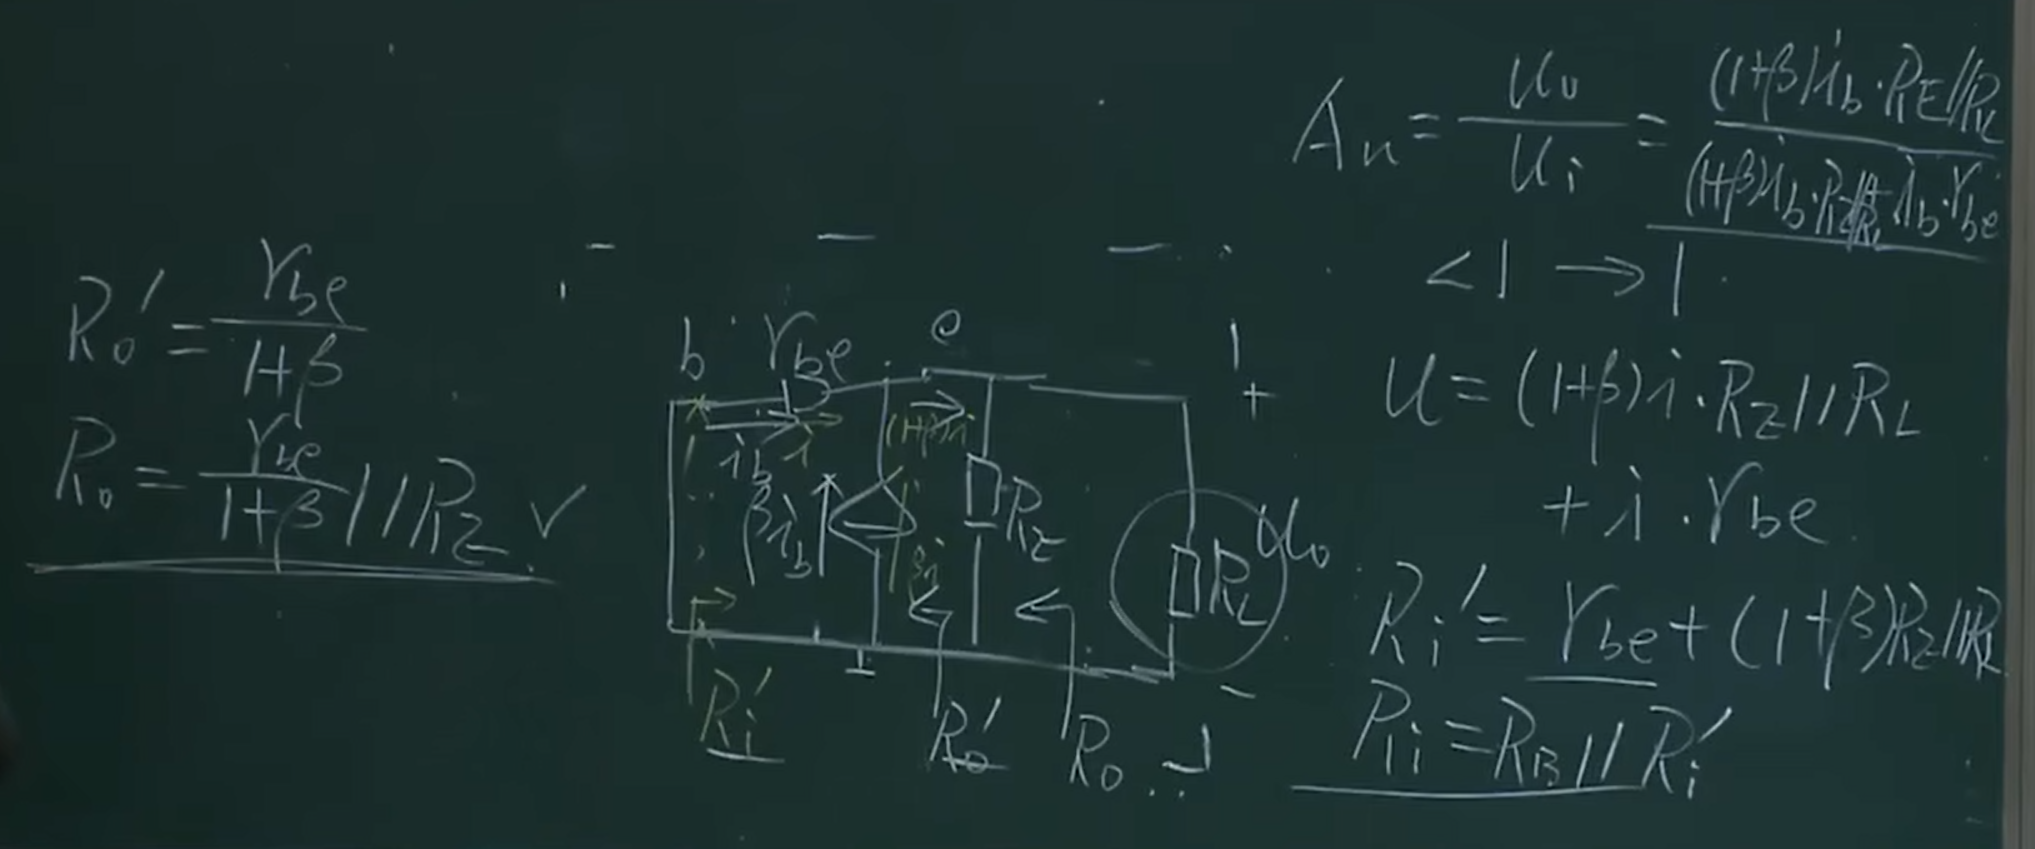 Ro' = rbe / 1+β
Ro = rbe / 1+β // RE √
b rbe e
ib i (1+β)i
βib βi RE RL Uo
+
-
Ri' Ro' Ro
Au = Uo / Ui = (1+β)ib·RE//RL / (1+β)ib·RE//RL + ib·rbe
<1 → 1
U = (1+β)i·RE//RL
+ i·rbe
Ri' = rbe + (1+β)RE//RL
Ri = RB // Ri'